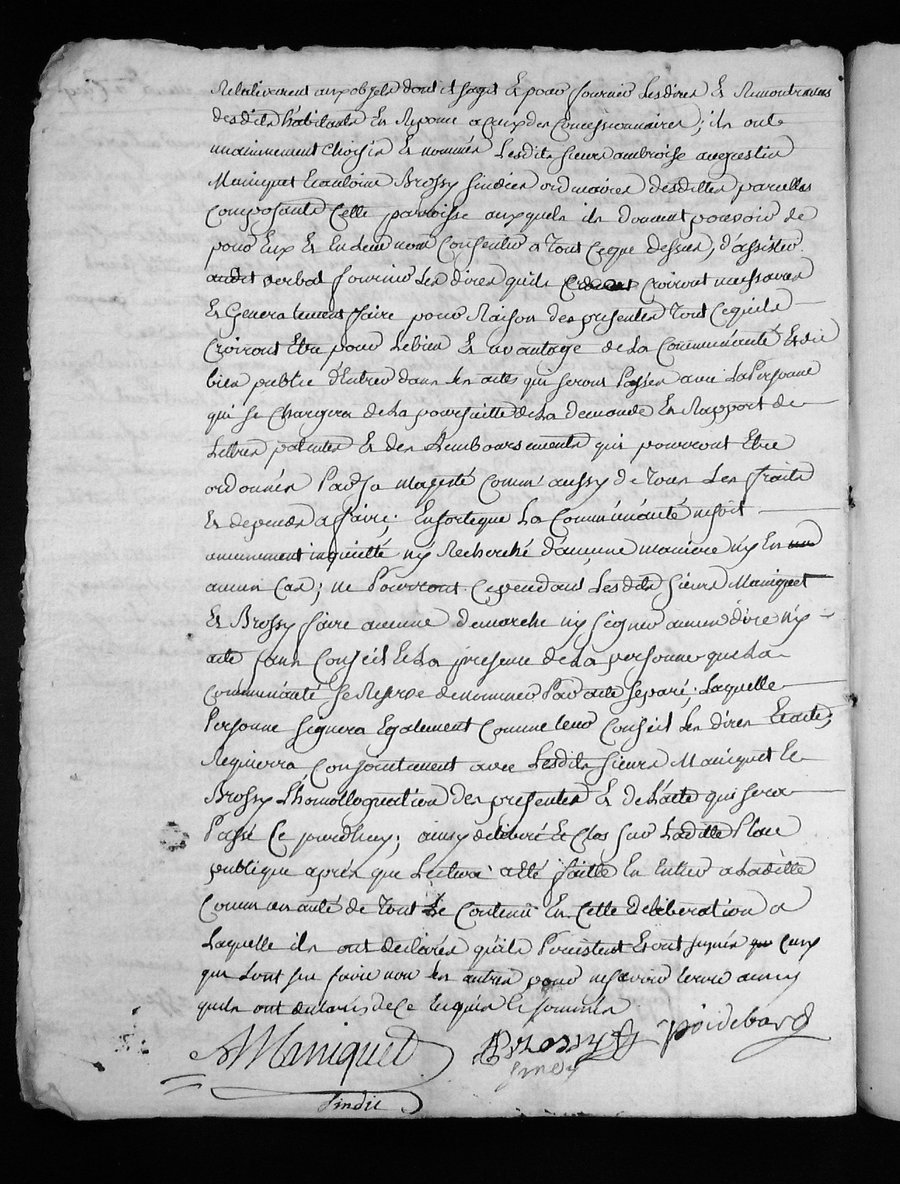 Relativement aux objets dont il sagit Et pour fournir Les dires Et Remontrances
desdits habitants En Reponse a Ceux des Concessionnaires; ils ont
unaniment Choisis Et nommés Lesdits sieurs ambroise augustin
Maniquet Et antoine Brossy sindics ordinaires desdittes parcelles
Composants Cette parroisse auxquels ils donnent pouvoir de
pour Eux Et En leur nom Consentir a tout Ceque dessus, d'assister
audit verbal fournir Les dires quils Croiront necessaires
Et Generalement faire pour Raison des presentes tout Cequils
Croiront Etre pour Lebien Et avantage de La Communauté Et du
bien public d'Entrer dans Les actes qui seront Passés avec La Personne
qui se Chargera de La poursuitte de La demande En Rapport de
Lettres patentes Et des Remboursements qui pourront Etre
ordonnés Par Sa Magesté Comm' aussy de tous Les fraits
Et depends a faire. Ensorteque La Communauté nesoit
aucunement inquietté ny Recherché d'aucune maniere ny En
aucun Cas; ne Pourront Cependant Lesdits sieurs Maniquet
Et Brossy faire aucune demarche ny signer aucun dire ny
acte sans Conseil Et La presence de La personne que La
Communauté se Reserve de nommer Par acte separé, Laquelle
Personne signera Egalement Comme leur Conseil Les dires Et actes,
Requierra Conjointement avec Lesdits sieurs Maniquet Et
Brossy L'homolloguation des presentes Et de L'acte qui sera
Passé Ce jourdhuy; ainsy deliberé Et Clos sur Laditte Place
publique aprés que Lecture a eté faitte En Entier a Laditte
Communauté de tout Le Contenu En Cette deliberation a
Laquelle ils ont declarés quils Persistent Et ont signés Ceux
qui Lont su faire non Les autres pour ne savoir Ecrire ainsy
quils ont declarés de Ce Enquis Et sommés
AManiquet Brossy Poidebard
sindic
sindic